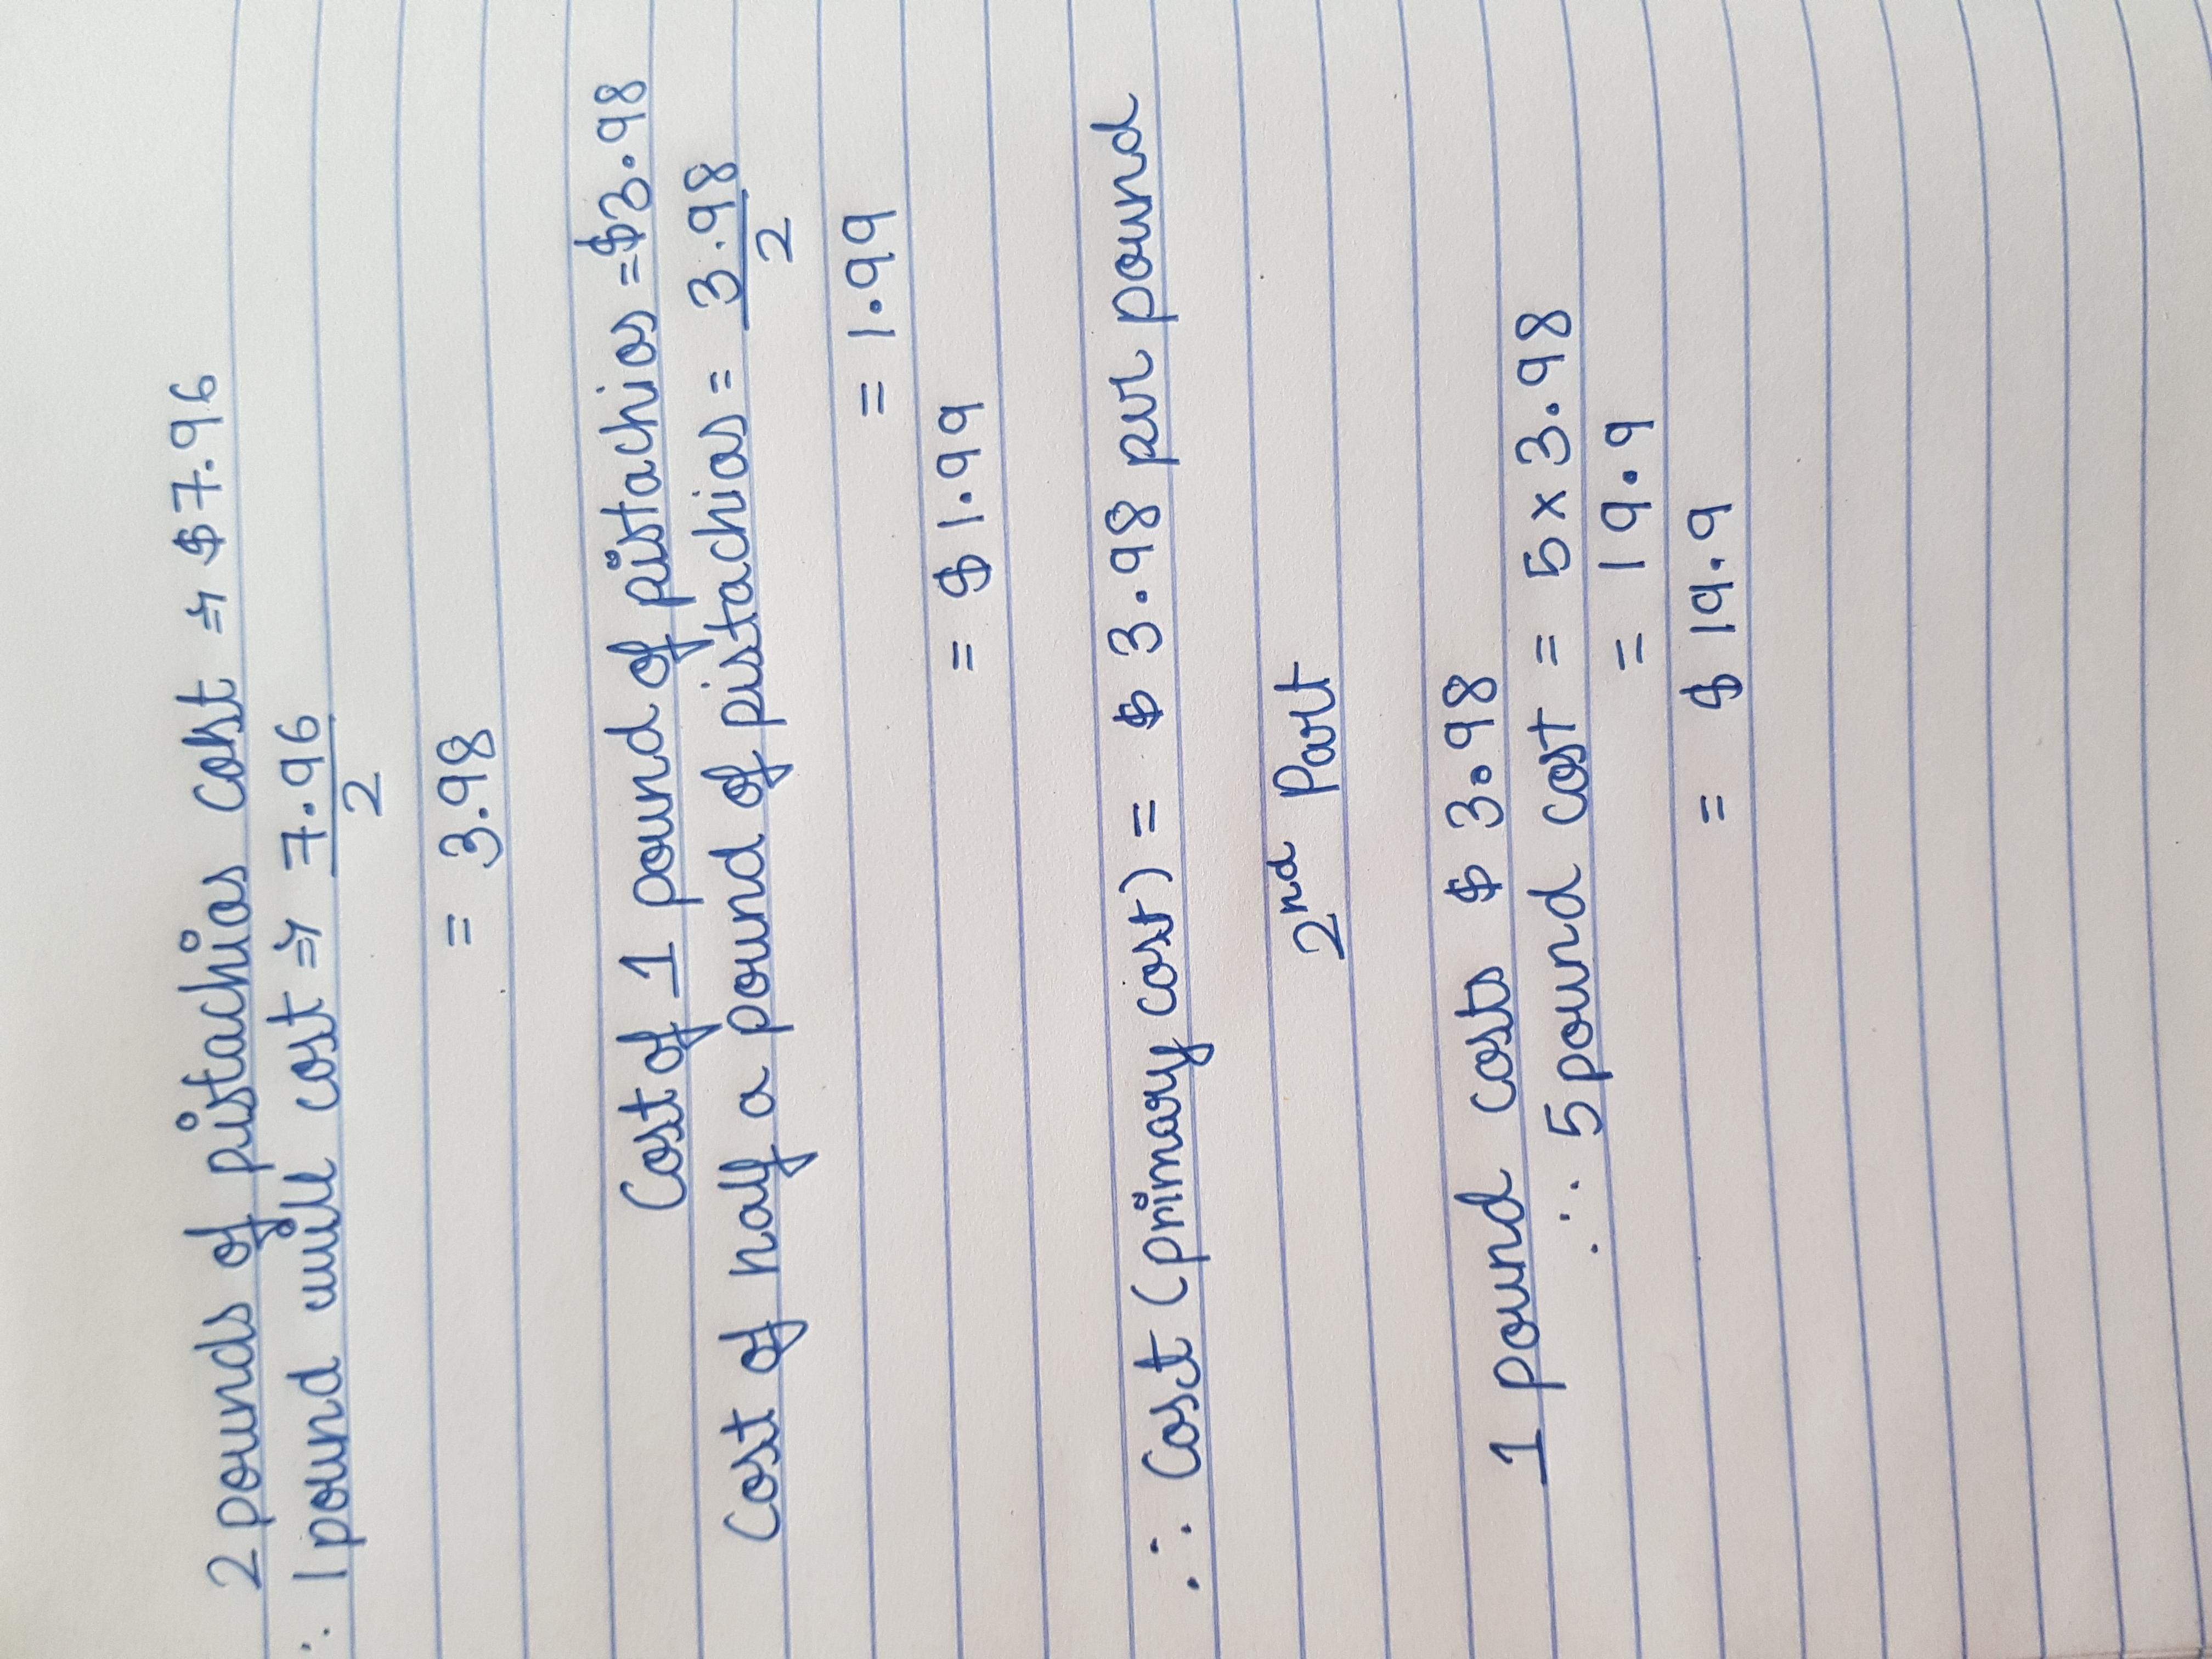 2 pounds of pistachios cost ⇒ $7.96
∴ 1 pound will cost ⇒ 7.96/2
= 3.98
Cost of 1 pound of pistachios = $3.98
Cost of half a pound of pistachios = 3.98/2
= 1.99
= $1.99
∴ Cosct (primary cost) = $3.98 per pound
2nd Part
1 pound costs $3.98
∴ 5 pound cost = 5 × 3.98
= 19.9
= $19.9